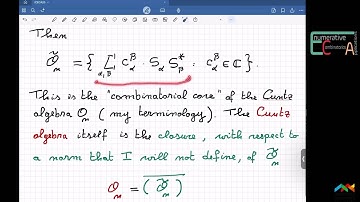 Then
Õₙ = { Σ' c_α^β · S_α S_β* : c_α^β ∈ ℂ }.
α, β
This is the "combinatorial core" of the Cuntz
algebra Oₙ (my terminology). The Cuntz
algebra itself is the closure, with respect to
a norm that I will not define, of Õₙ
Oₙ = (Õₙ)
enumerative
Combinatorics
A